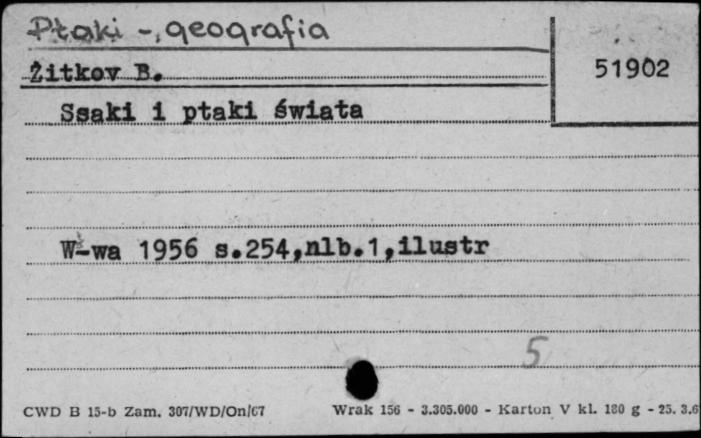 Ptaki - geografia
Żitkov B.
51902
Ssaki i ptaki świata
W-wa 1956 s.254,nlb.1,ilustr
5
CWD B 15-b Zam. 307/WD/On/67 Wrak 156 - 3.305.000 - Karton V kl. 180 g - 25. 3.6